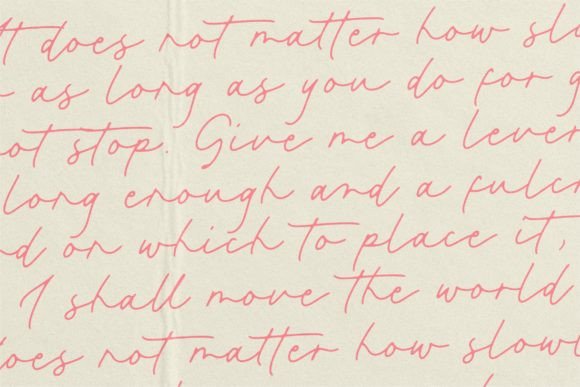 It does not matter how slo
as long as you do for g
ot stop. Give me a lever
long enough and a fulcr
nd on which to place it,
I shall move the world
does not matter how slowl